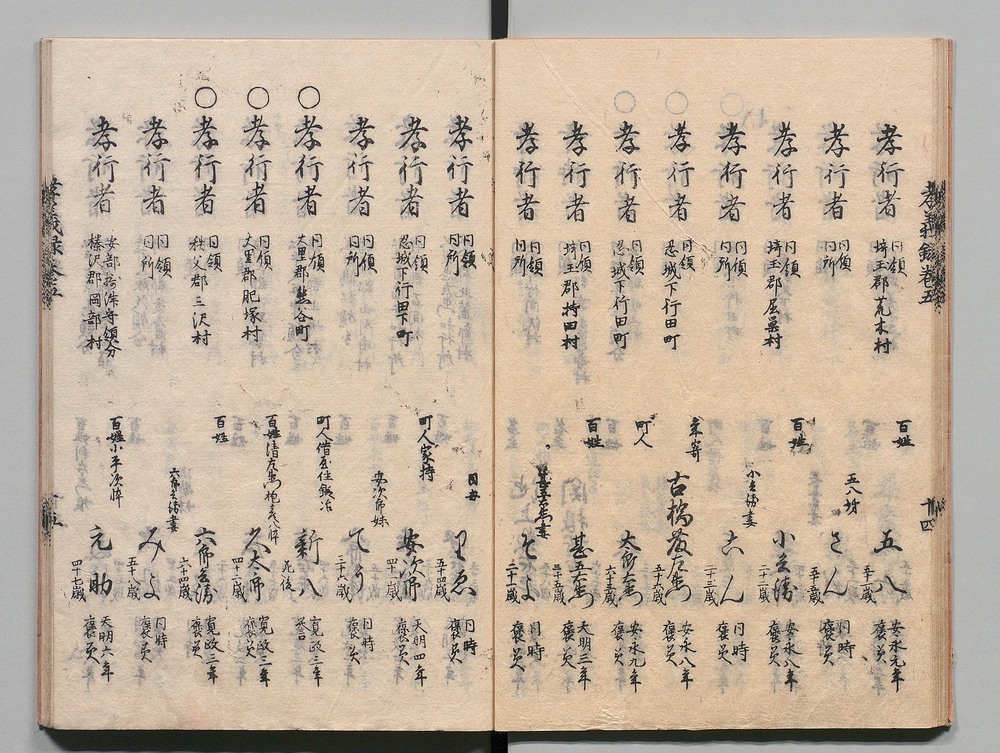 孝義録巻五
十四
孝行者 同領 埼玉郡荒木村 百姓 五八 五十一歳 安永元年 褒美
孝行者 同領 同所 五八妹 さん 五十七歳 同時 褒美
孝行者 同領 埼玉郡屈巣村 百姓 小兵衛 二十二歳 安永八年 褒美
孝行者 同領 同所 小兵衛妻 こん 二十三歳 同時 褒美
孝行者 同領 忍城下行田町 年寄 古橋 五十歳 安永八年 褒美
孝行者 同領 忍城下行田町 町人 六十五歳 安永九年 褒美
孝行者 同領 埼玉郡持田村 百姓 甚五右衛門 三十五歳 天明三年 褒美
孝行者 同領 同所 甚五右衛門妻 そよ 二十一歳 同時 褒美
孝行者 同領 同所 同母 りゑ 五十四歳 同時 褒美
孝行者 同領 忍城下行田下町 町人家持 安次郎 天明四年 褒美
孝行者 同領 同所 安次郎妹 三十六歳 同時 褒美
○ 孝行者 同領 大里郡熊谷町 町人借屋住鍛冶 新八 死後 寛政三年
○ 孝行者 同領 大里郡肥塚村 百姓清左衛門 久太郎 四十二歳 寛政三年 褒美
○ 孝行者 同領 秩父郡三沢村 百姓 六郎兵衛 六十四歳 寛政三年 褒美
孝行者 同領 同所 六郎兵衛妻 みよ 五十八歳 同時 褒美
孝行者 安部摂津守領分 榛沢郡岡部村 百姓小平次悴 元助 四十七歳 天明六年 褒美
孝義録巻五